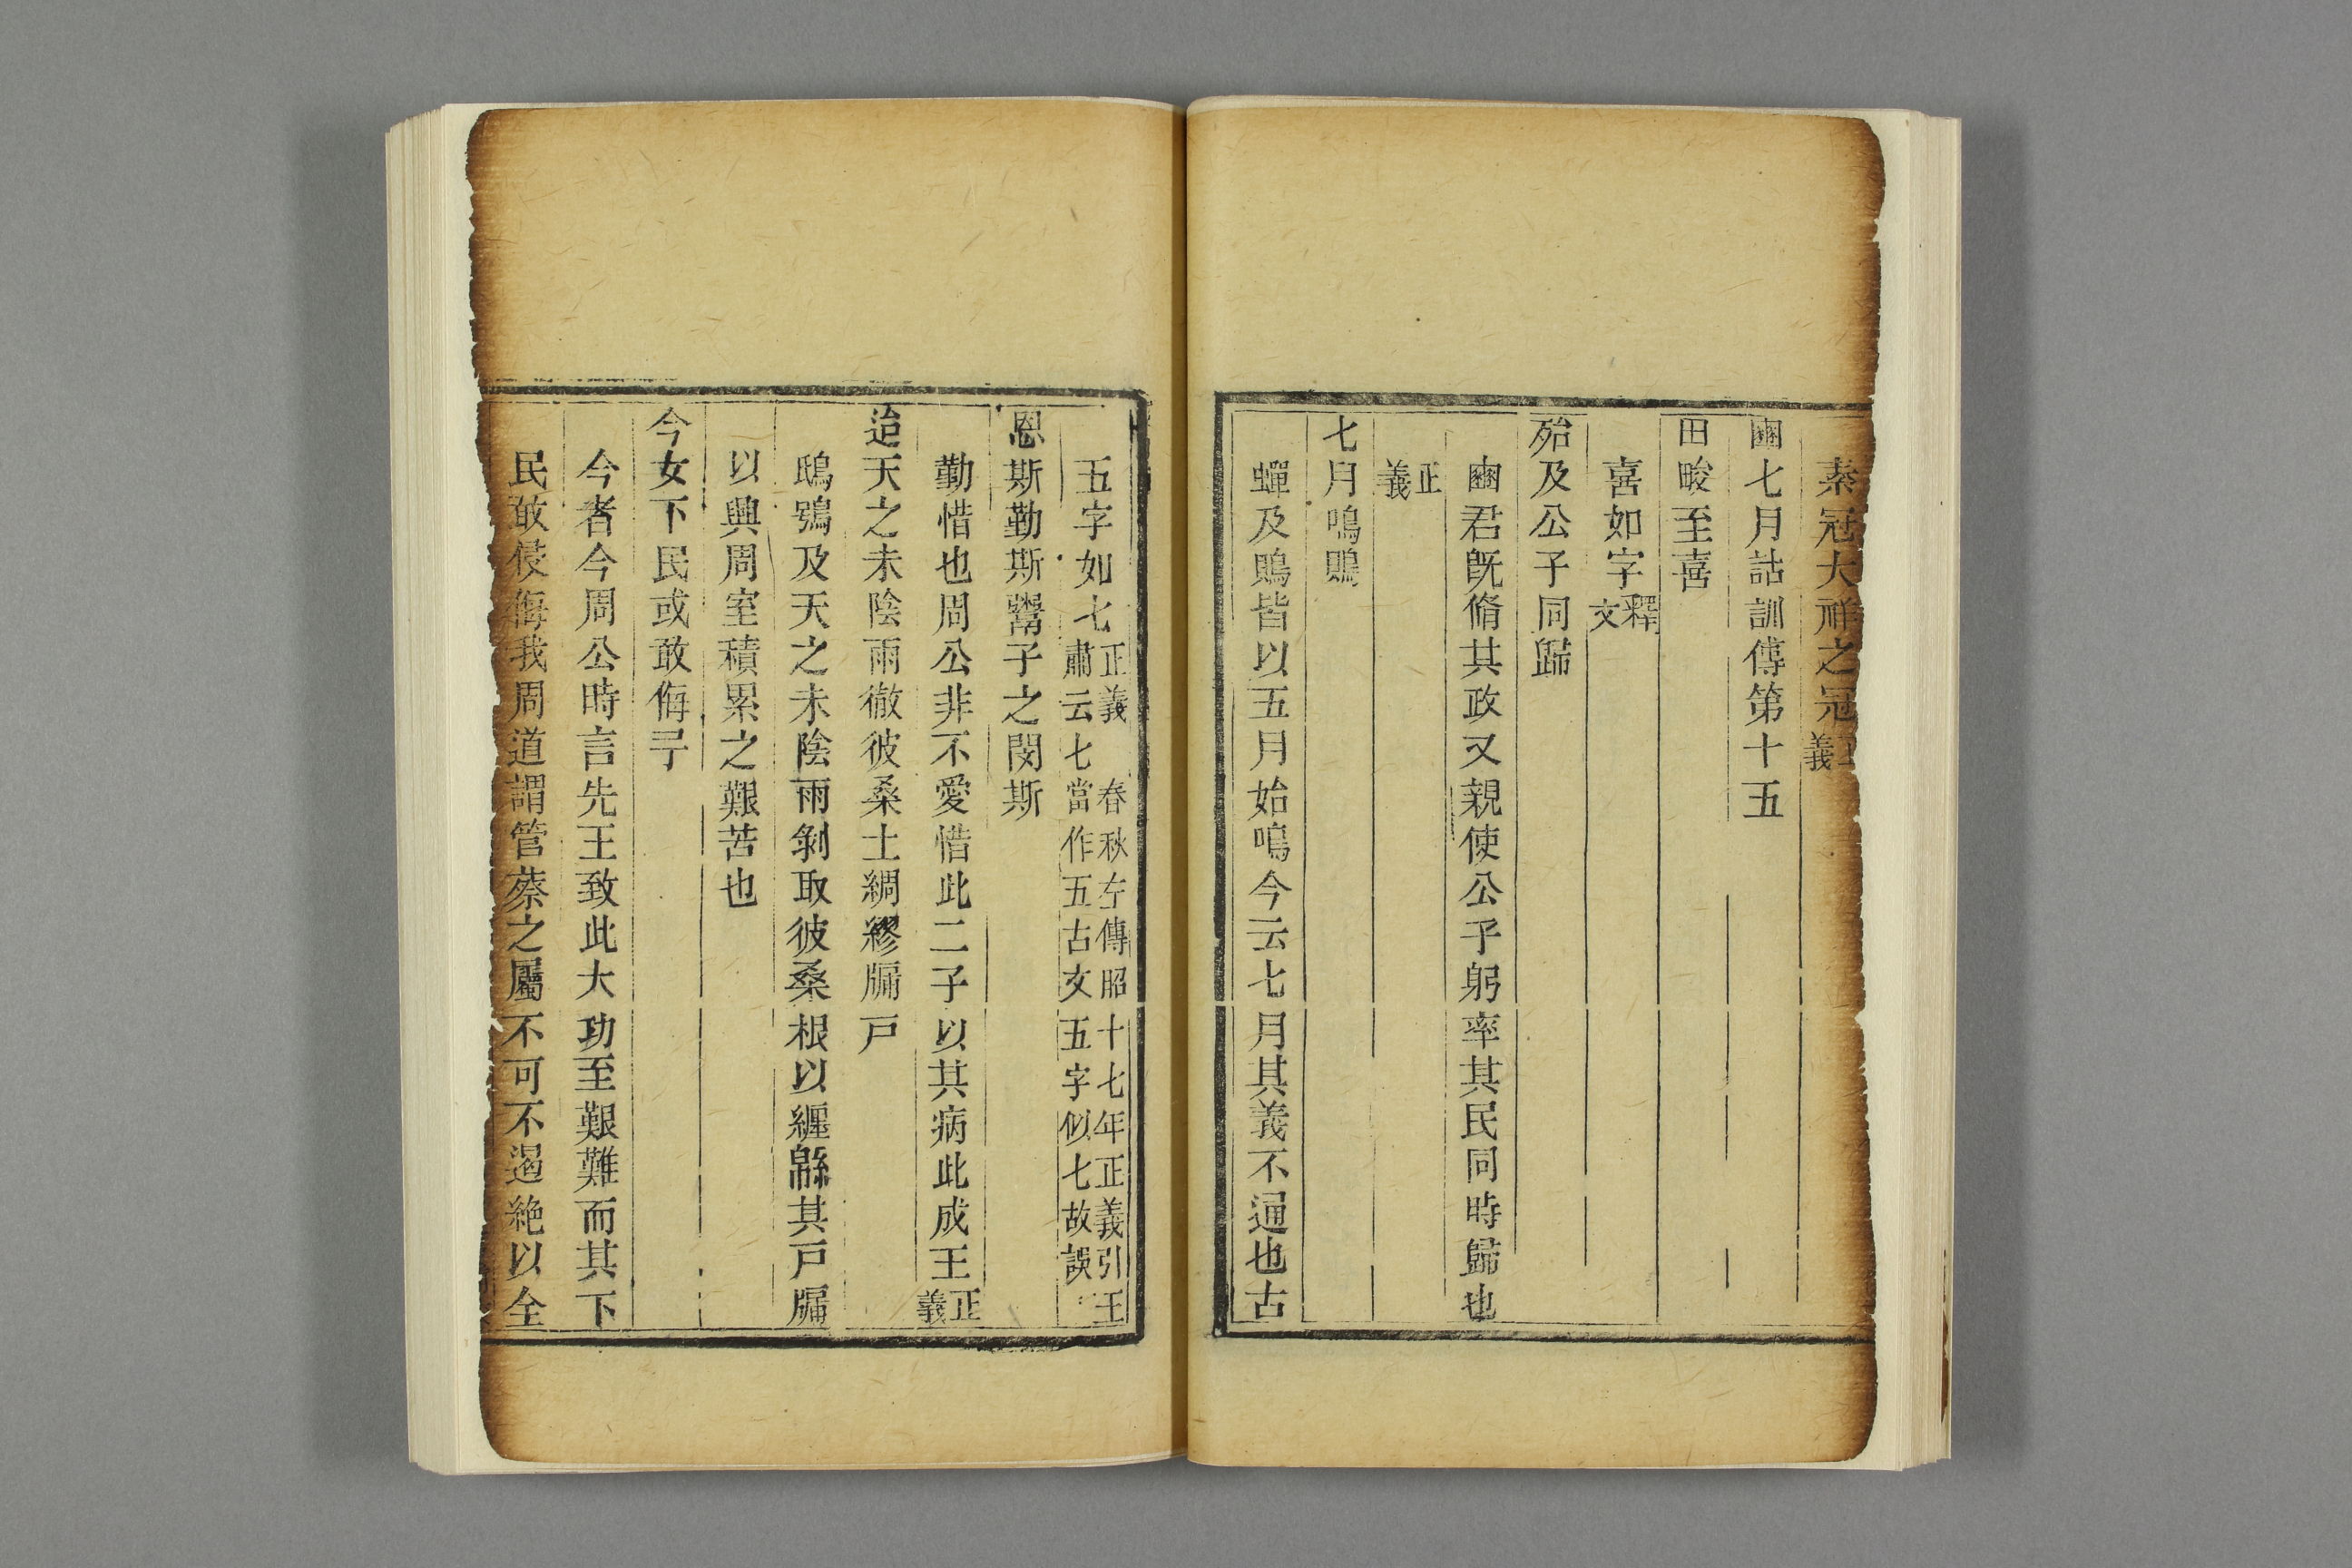 素冠大祥之冠正義
豳七月詁訓傳第十五
田畯至喜
喜如字釋文
殆及公子同歸
豳君旣脩其政又親使公子躬率其民同時歸也
正義
七月鳴鵙
蟬及鵙皆以五月始鳴今云七月其義不通也古
五字如七正義 春秋左傳昭十七年正義引王肅云七當作五古文五字似七故誤
恩斯勤斯鬻子之閔斯
勤惜也周公非不愛惜此二子以其病此成王正義
迨天之未陰雨徹彼桑土綢繆牖戸
鴟鴞及天之未陰雨剝取彼桑根以纏緜其戸牖
以興周室積累之艱苦也
今女下民或敢侮予
今者今周公時言先王致此大功至艱難而其下
民敢侵侮我周道謂管蔡之屬不可不遏絶以全